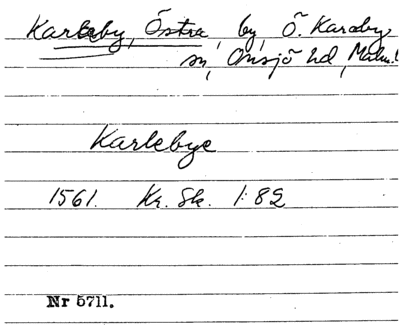 Karleby, Östra, by, Ö. Karaby
sn, Onsjö hd, Malm.l
Karlebye
1561. Kr. Sk. 1:82
Nr 5711.